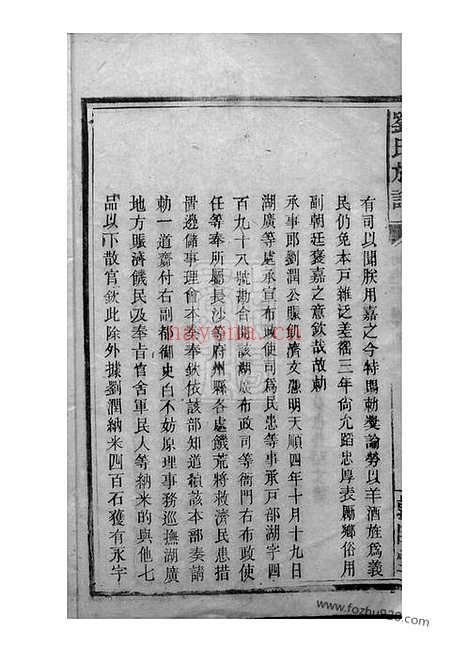 劉氏族譜
有司以聞朕用嘉之今特賜勅奬諭勞以羊酒旌爲義
民仍免本戶雜泛差徭三年尙允蹈忠厚表勵鄉俗用
副朝廷褒嘉之意欽哉故勅
承事郎劉潤公賑飢濟文憑明天順四年十月十九日
湖廣等處承宣布政使司爲民患等事承戶部湖字四
百九十八號勘合開該湖廣布政司等衙門右布政使
任等奉所屬長沙等府州縣各處饑荒將救濟民患措
置邊儲事理會本具奉欽依該部知道續該本部奏請
勅一道齎付右副都御史白不妨原理事務巡撫湖廣
地方賑濟饑民及奉吉官舍軍民人等納米的與他七
品以下散官欽此除外據劉潤納米四百石獲有永字
nayona.cn
www.fozhu920.com